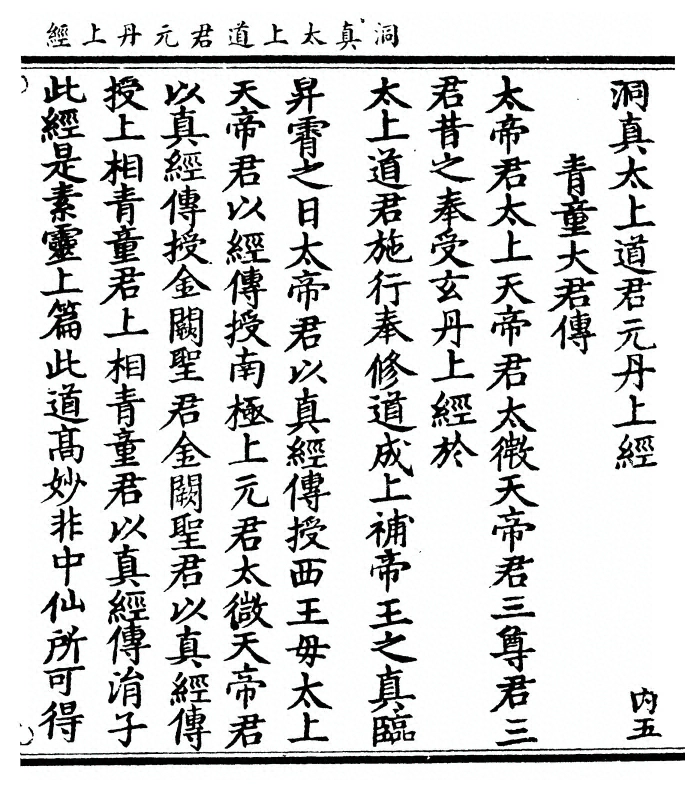 洞真太上道君元丹上經
洞真太上道君元丹上經
内五
青童大君傳
太帝君太上天帝君太微天帝君三尊君三
君昔之奉受玄丹上經於
太上道君施行奉修道成上補帝王之真臨
昇霄之日太帝君以真經傳授西王母太上
天帝君以經傳授南極上元君太微天帝君
以真經傳授金闕聖君金闕聖君以真經傳
授上相青童君上相青童君以真經傳涓子
此經是素靈上篇此道高妙非中仙所可得